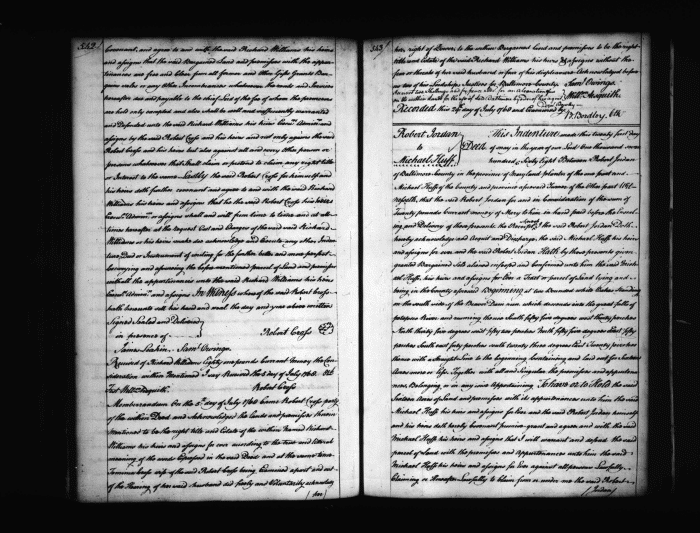 342
Covenant and agree to and with the said Richard Williams his heirs
and assigns that the said Bargained Land and premises with the appur-
tenances are free and clear from all former and other Gifts Grants Bar-
gains sales or any other Incumbrances whatsoever the rents and Services
hereafter due and payable to the chief Lord of the fee of whom the premises
are held only excepted and also shall be well and sufficiently warranted
and Defended unto the said Richard Williams his heirs Exors Admrs and
assigns by the said Robert Cross and his heirs and not only against the said
Robert Cross and his heirs but also against all and every other person or
persons whatsoever that shall claim or pretend to claim any right title
or Interest to the same Lastly the said Robert Cross for himself and
his heirs doth further covenant and agree to and with the said Richard
Williams his heirs and assigns that he the said Robert Cross his heirs
Exors Admrs or assigns shall and will from time to time and at all
times hereafter at the request Cost and Charges of the said Richard
Williams or his heirs make do acknowledge and Execute any other Inden-
ture Deed or Instrument of writing for the further better and more perfect
conveying and assuring the before mentioned parcel of Land and premises
with all the appurtenances unto the said Richard Williams his heirs
Exors Admrs and assigns In Witness whereof the said Robert Cross
hath hereunto set his hand and seal the day and year above written
Signed Sealed and Delivered
in presence of
Robert Cross
James Saml Owings
Received of Richard Williams Eighty one pounds Current Money the Con-
sideration within Mentioned I say Received the day of July 1768
Test Willm Asquith Robert Cross
Memorandum On the 5th day of July 1768 Came Robert Cross party
of the within Deed and Acknowledged the Lands and premises therein
Mentioned to be the right title and Estate of the within Named Richard
Williams his heirs and assigns for ever according to the true and literal
meaning of the words Expressed in the said Deed and at the same time
Jemima Cross wife of the said Robert Cross being Examined apart and out
of the Hearing of her said husband did freely and Voluntarily acknowledge
(her)
343
her right of Dower to the within Bargained Land and premises to be the right
title and Estate of the said Richard Williams his heirs & assigns without the
fear or threats of her said husband or fear of his displeasure Acknowledged before
us two of his Lordships Justices for Baltimore County Saml Owings
Willm Asquith
Recorded this day of July 1768 and Examined by
B. Bordley Clk
Robert Jordan
to
Michael Huff
Deed
This Indenture made this twenty first day
of may in the year of our Lord One thousand seven
hundred Sixty Eight Between Robert Jordan
of Baltimore County in the province of Maryland planter of the one part and
Michael Huff of the County and province aforesaid of the Other part Wit-
nesseth that the said Robert Jordan for and in Consideration of the sum of
Twenty pounds Current money of Mary to him in hand paid before the Enseal-
ing and Delivery of these presents the Receipt the said Robert Jordan Doth
hereby acknowledge and Acquit and Discharge the said Michael Huff his heirs
and assigns for ever and the said Robert Jordan Hath by these presents given
granted Bargained Sold aliened enfeoffed and Confirmed unto him the said Mich-
ael Huff his heirs and assigns for Ever a Tract or parcel of Land lying and
being in the County aforesaid Beginning at two Bounded white Oakes standing
on the north side of the Beaver Dam run which descends into the great falls of
patapsco River and running thence South fifty five degrees west thirty perches
North thirty five degrees west fifty two perches North fifty five degrees East fifty
perches South east forty perches south twenty three degrees East Twenty perches
thence with a straight line to the beginning Containing and Laid out for Sixteen
Acres more or less Together with all and Singular the premises and appurte-
nances Belonging or in any wise appertaining To have or to Hold the said
Sixteen Acres of Land and premises with its appurtenances unto him the said
Michael Huff his heirs and assigns for Ever and the said Robert Jordan himself
and his heirs doth hereby Covenant promise grant and agree and with the said
Michael Huff his heirs and assigns that I will warrant and defend the said
parcel of Land with the premises and appurtenances unto him the said
Michael Huff his heirs and assigns for Ever against all persons Lawfully
Claiming or Hereafter Lawfully to Claim from or under me the said Robert
(Jordan)